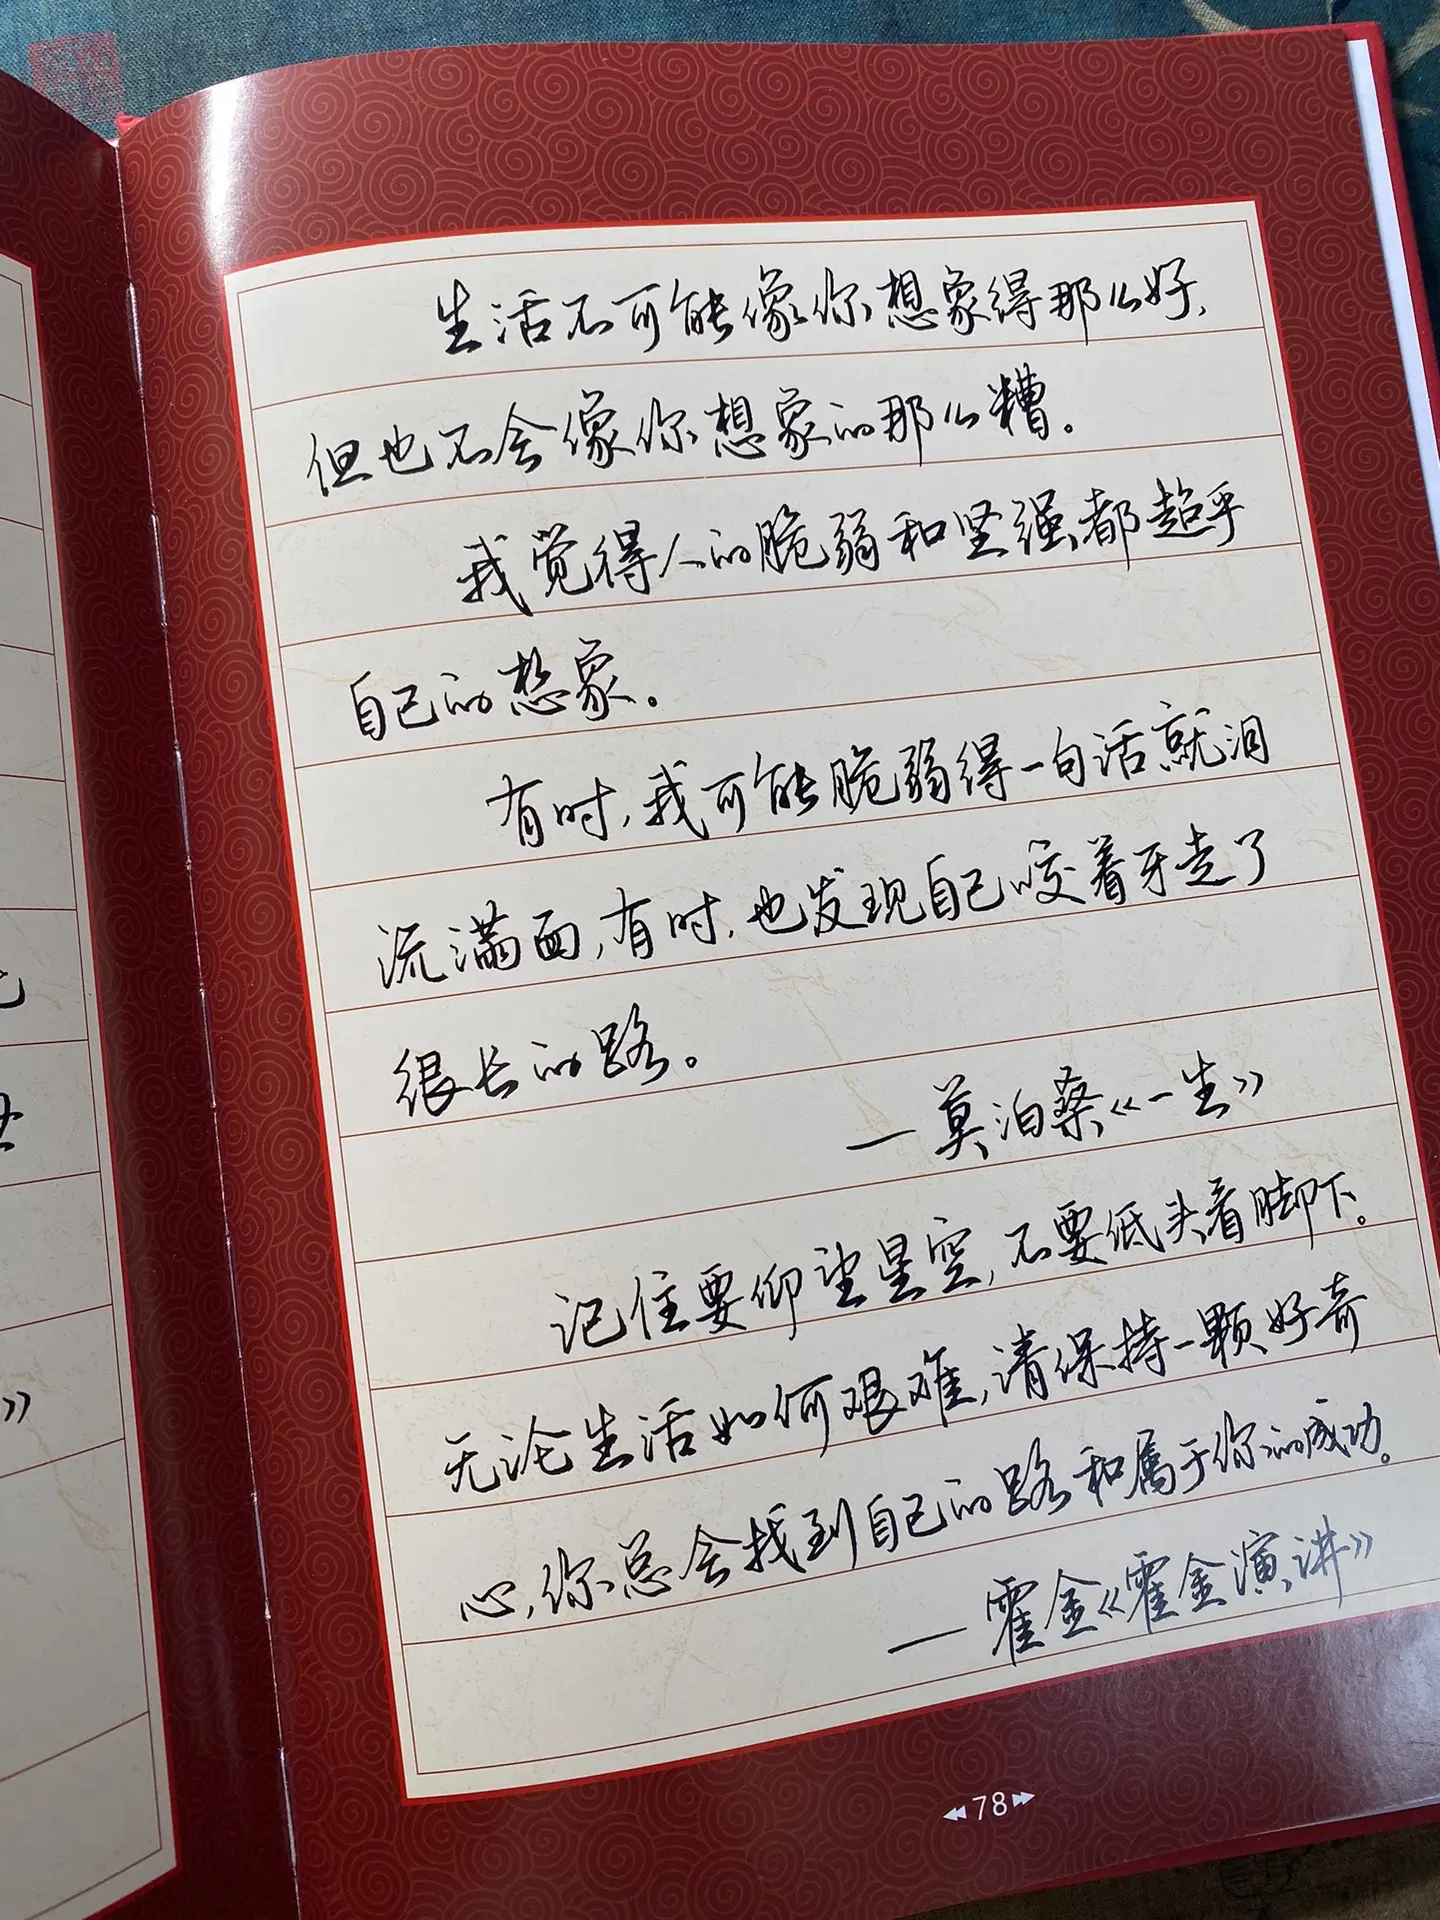 生活不可能像你想象得那么好，
但也不会像你想象的那么糟。
我觉得人的脆弱和坚强都超乎
自己的想象。
有时，我可能脆弱得一句话就泪
流满面，有时，也发现自己咬着牙走了
很长的路。
—莫泊桑《一生》
记住要仰望星空，不要低头看脚下。
无论生活如何艰难，请保持一颗好奇
心，你总会找到自己的路和属于你的成功。
—霍金《霍金演讲》
78